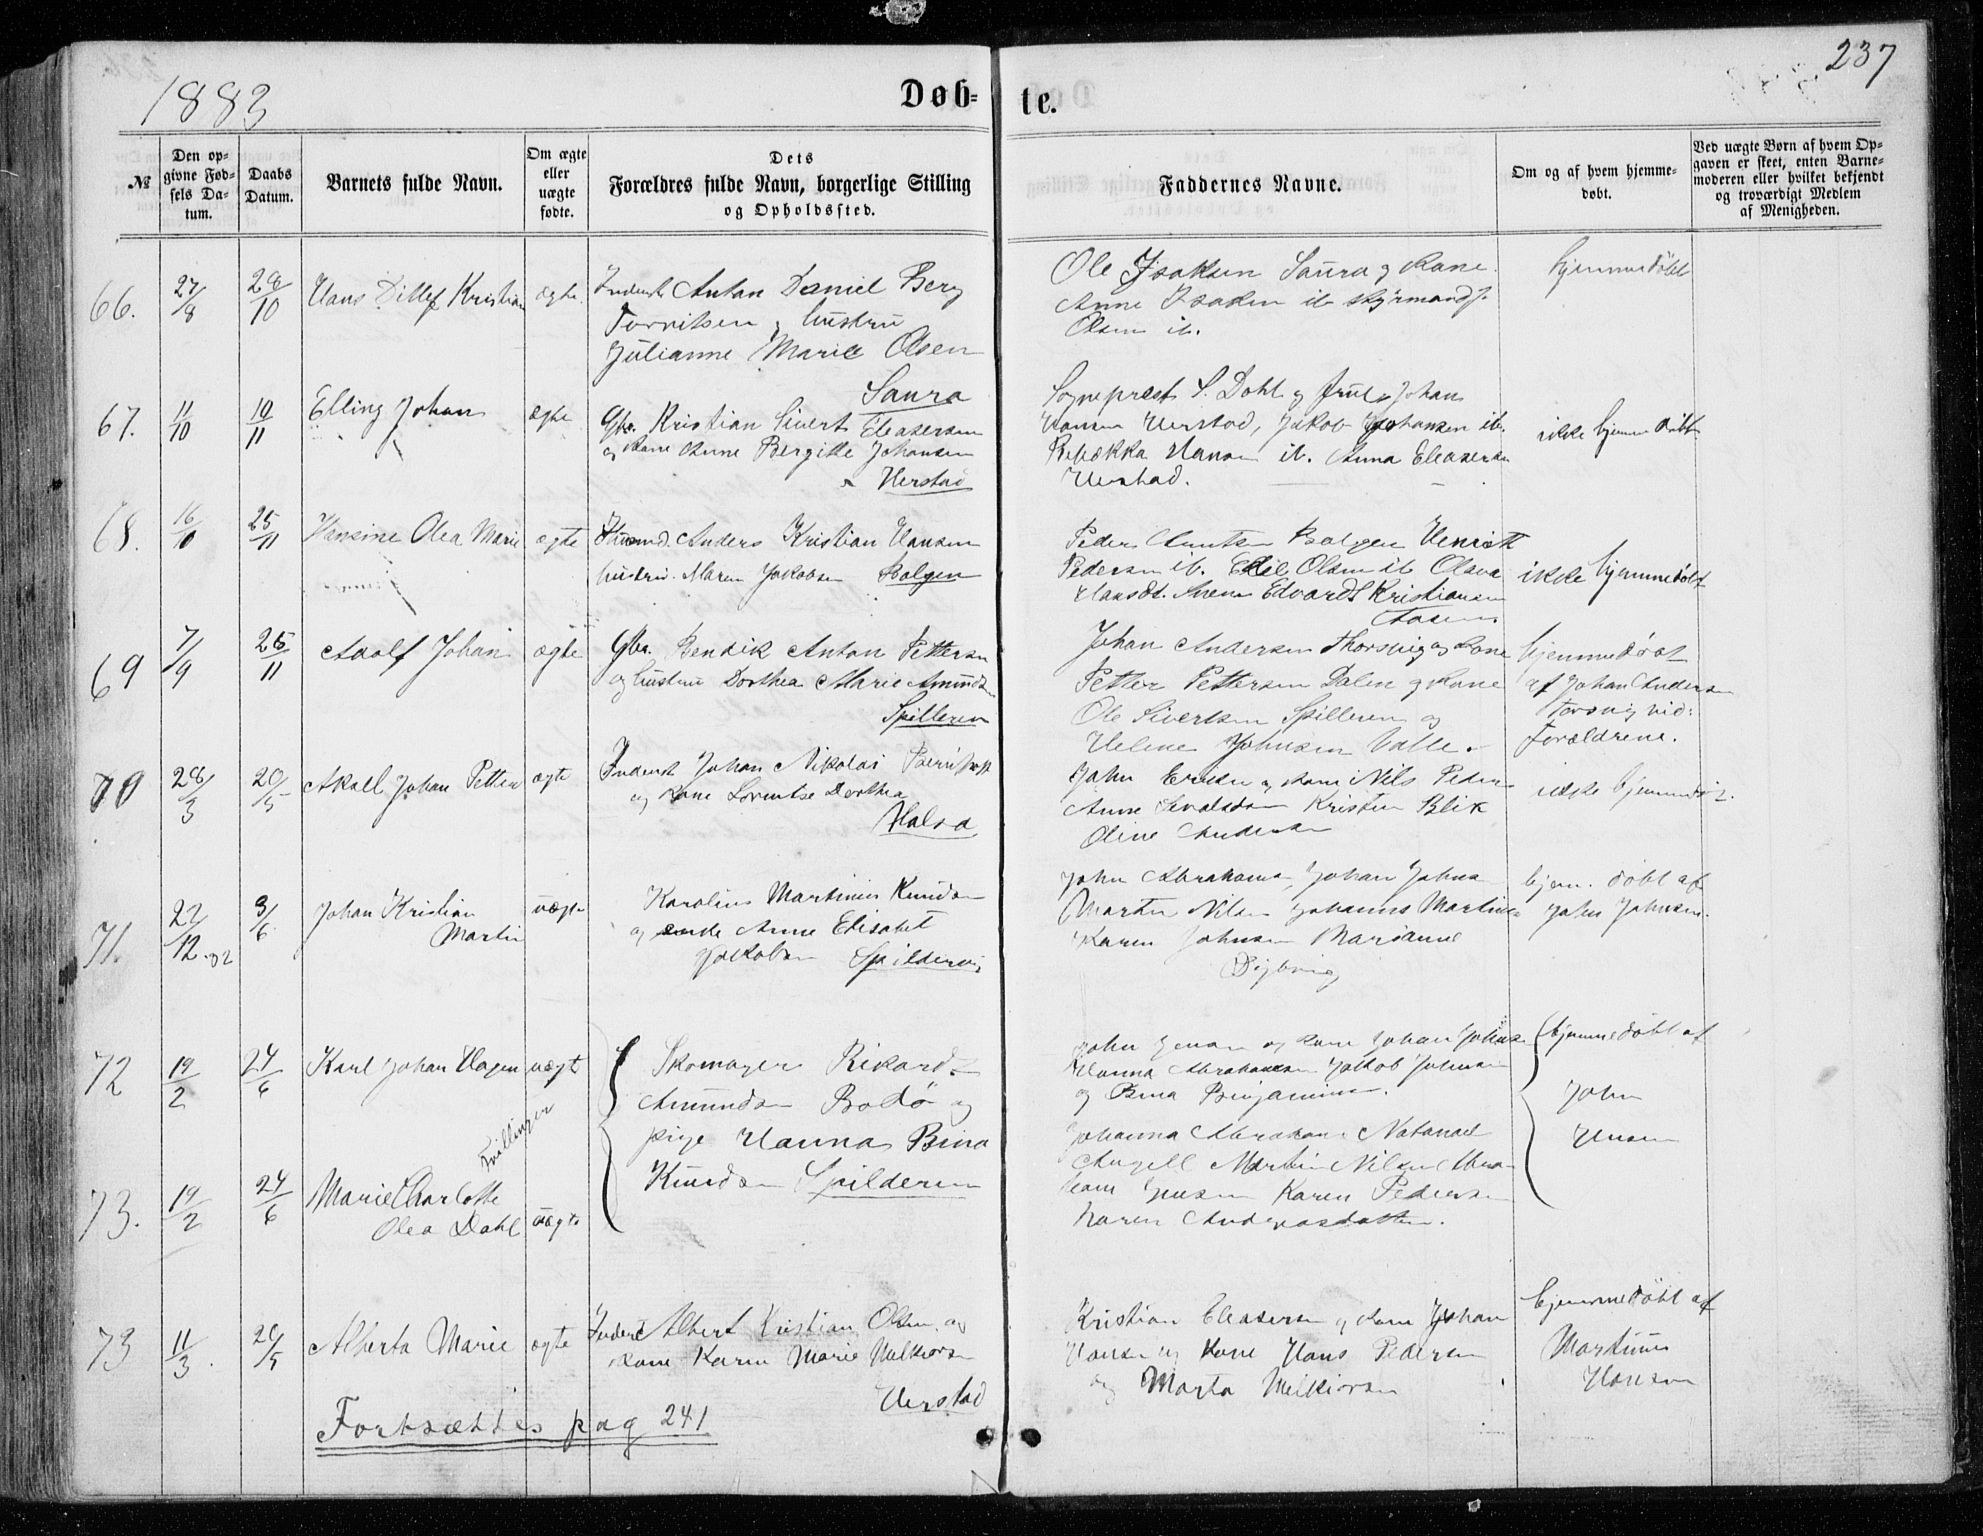 237
1883
Døb-
te.
№
Den op-
givne Fød-
sels Da-
tum.
Daabs
Datum.
Barnets fulde Navn.
Om ægte
eller
uægte
fødte.
Dets
Forældres fulde Navn, borgerlige Stilling
og Opholdssted.
Faddernes Navne.
Om og af hvem hjemme-
døbt.
Ved uægte Børn af hvem Op-
gaven er skeet, enten Barne-
moderen eller hvilket bekjendt
og troværdigt Medlem
af Menigheden.
66.
27/8
28/10
Hans Ditlef Kristian
ægte
Inderst Anton Daniel Berg
og hustru
Julianne Marie Olsen
Saura
Ole Isaksen Saura og Kone
Anne Isaksen ib
Olsen ib.
hjemmedøbt
67.
11/10
18/11
Elling Johan
ægte
Gbr. Kristian Sivert Eleasersen
og Kone Anne Bergitte Johansen
Herstad
Sogneprest S. Dahl og Frue Johan
Hansen Herstad, Jakob Johansen ib.
Rebækka Hansen ib. Anna Eleasersen
Herstad.
ikke hjemmedøbt
68.
16/10
25/11
Hansine Olea Marie
ægte
Husmd. Anders Kristian Hansen
hustru Maren Jakobsen Bolgen
Peder Knutsen Bolgen Henrik
Pedersen ib. Olsen ib Olava
Hansdt. Edvard Kristiansen
Aasen
ikke hjemmedøbt
69
7/9
25/11
Adolf Johan
ægte
Gbr. Bendik Anton Pettersen
og hustru Dorthea Marie Amundsen
Spilderen
Johan Andersen Thorsvig og Kone
Petter Pettersen Dalen og Kone
Ole Sivertsen Spilderen og
Helene Johnsen Valle
hjemmedøbt
af Johan Andersen
Torsvig vid:
Forældrene.
70
28/3
20/5
Johan Petter
ægte
Inderst Johan Nikolai
og Kone Lorentse Dorthea
Halsa
John og Kone Nils Peder
Anne Kristen Blik
Oline Andersen
ikke hjemmedøbt.
71.
22/12.82
3/6
Johan Kristian
Martin
uægte
Karolius Martinus Knudsen
og enke Anne Elisabet
Jakobsen Spildervig
John Abrahams, Johan Johns
Martin Nilsen Johannes Martins
Karen Johnsen Marianne
hjem. døbt af
John Johnsen.
72
19/2
24/6
Karl Johan Hagen
uægt
Tvillinger
Skomager Rikard
Amundsen Bodø og
pige Hanna Bina
Knudsen Spilderen
John Jensen og Kone Johan Johns
Hanna Abrahamsen Jakob Johnsen
og Bina Benjaminsen.
hjemmedøbt af
John
Jensen
73.
19/2
24/6
Marie Charlotte
Olea Dahl
uægte
Johanna Abrahams Natanael
Angell Martin Nilsen Abra-
ham Jensen Karen Pedersen
Karen Andreasdatter.
73
11/3.
20/5
Alberta Marie
ægte
Inderst Albert Kristian Olsen og
Kone Karen Marie Melkiorsen
Herstad
Kristian Eleasersen og Kone Johan
Hansen og Kone Hans Pedersen
og Marta Melkiorsen
hjemmedøbt af
Martinus
Hansen
Fortsættes pag 241